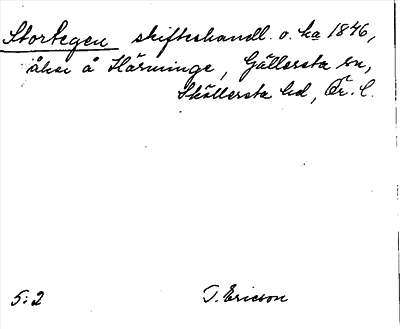 Stortegen skifteshandl. o. ka 1846,
åker å Härminge, Gällersta sn,
Sköllersta hd, Ör. l.
5:2 T. Ericson